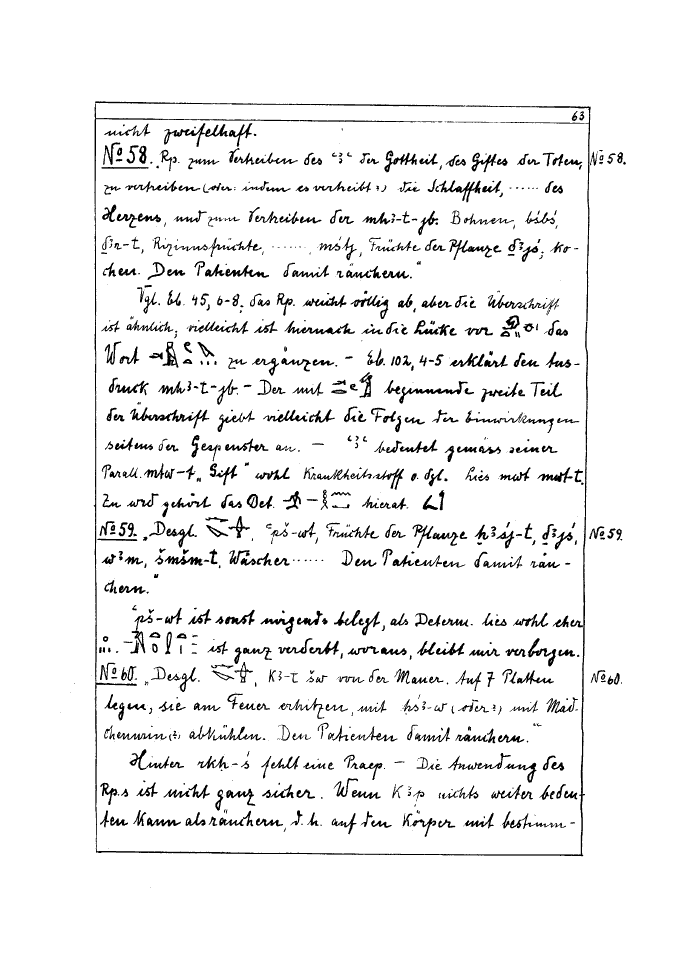 63
nicht zweifelhaft.
№ 58. „Rp. zum Vertreiben des ꜥꜣꜥ der Gottheit, des Giftes der Toten, № 58.
zu vertreiben (oder: indem es vertreibt?) die Schlaffheit, ...... des
Herzens, und zum Vertreiben der mhꜣ-t-jb. Bohnen, bśbś,
Rizinusfrüchte, ......, mśtj, Früchte der Pflanze ḏꜣjś; ko-
chen. Den Patienten damit räuchern."
Vgl. Eb. 45, 6-8, das Rp. weicht völlig ab, aber die Überschrift
ist ähnlich; vielleicht ist hiernach in die Lücke vor das
Wort zu ergänzen. – Eb. 102, 4-5 erklärt den Aus-
druck mhꜣ-t-jb. – Der mit beginnende zweite Teil
der Überschrift giebt vielleicht die Folgen der Einwirkungen
seitens der Gespenster an. – ꜥꜣꜥ bedeutet gemäss seiner
Parall. mtw-t „Gift" wohl Krankheitsstoff o. dgl. Lies mwt mwt-t.
Zu wrd gehört das Det. – hierat.
№ 59. „Desgl. , ꜥpš-wt, Früchte der Pflanze ḫꜣśj-t, ḏꜣjś, № 59.
wꜣm, šmšm-t, Wäscher ...... Den Patienten damit räu-
chern."
ꜥpš-wt ist sonst nirgends belegt, als Determ. lies wohl eher
ist ganz verderbt, woraus, bleibt mir verborgen.
№ 60. „Desgl. , Kꜣ-t šw von der Mauer. Auf 7 Platten № 60.
legen, sie am Feuer erhitzen, mit ḥśꜣ-w (oder?) mit Mäd-
chenurin (?) abkühlen. Den Patienten damit räuchern."
Hinter rkḥ-ś fehlt eine Praep. – Die Anwendung des
Rp.s ist nicht ganz sicher. Wenn Kꜣp nichts weiter bedeu-
ten kann als räuchern, d. h. auf den Körper mit bestimm-